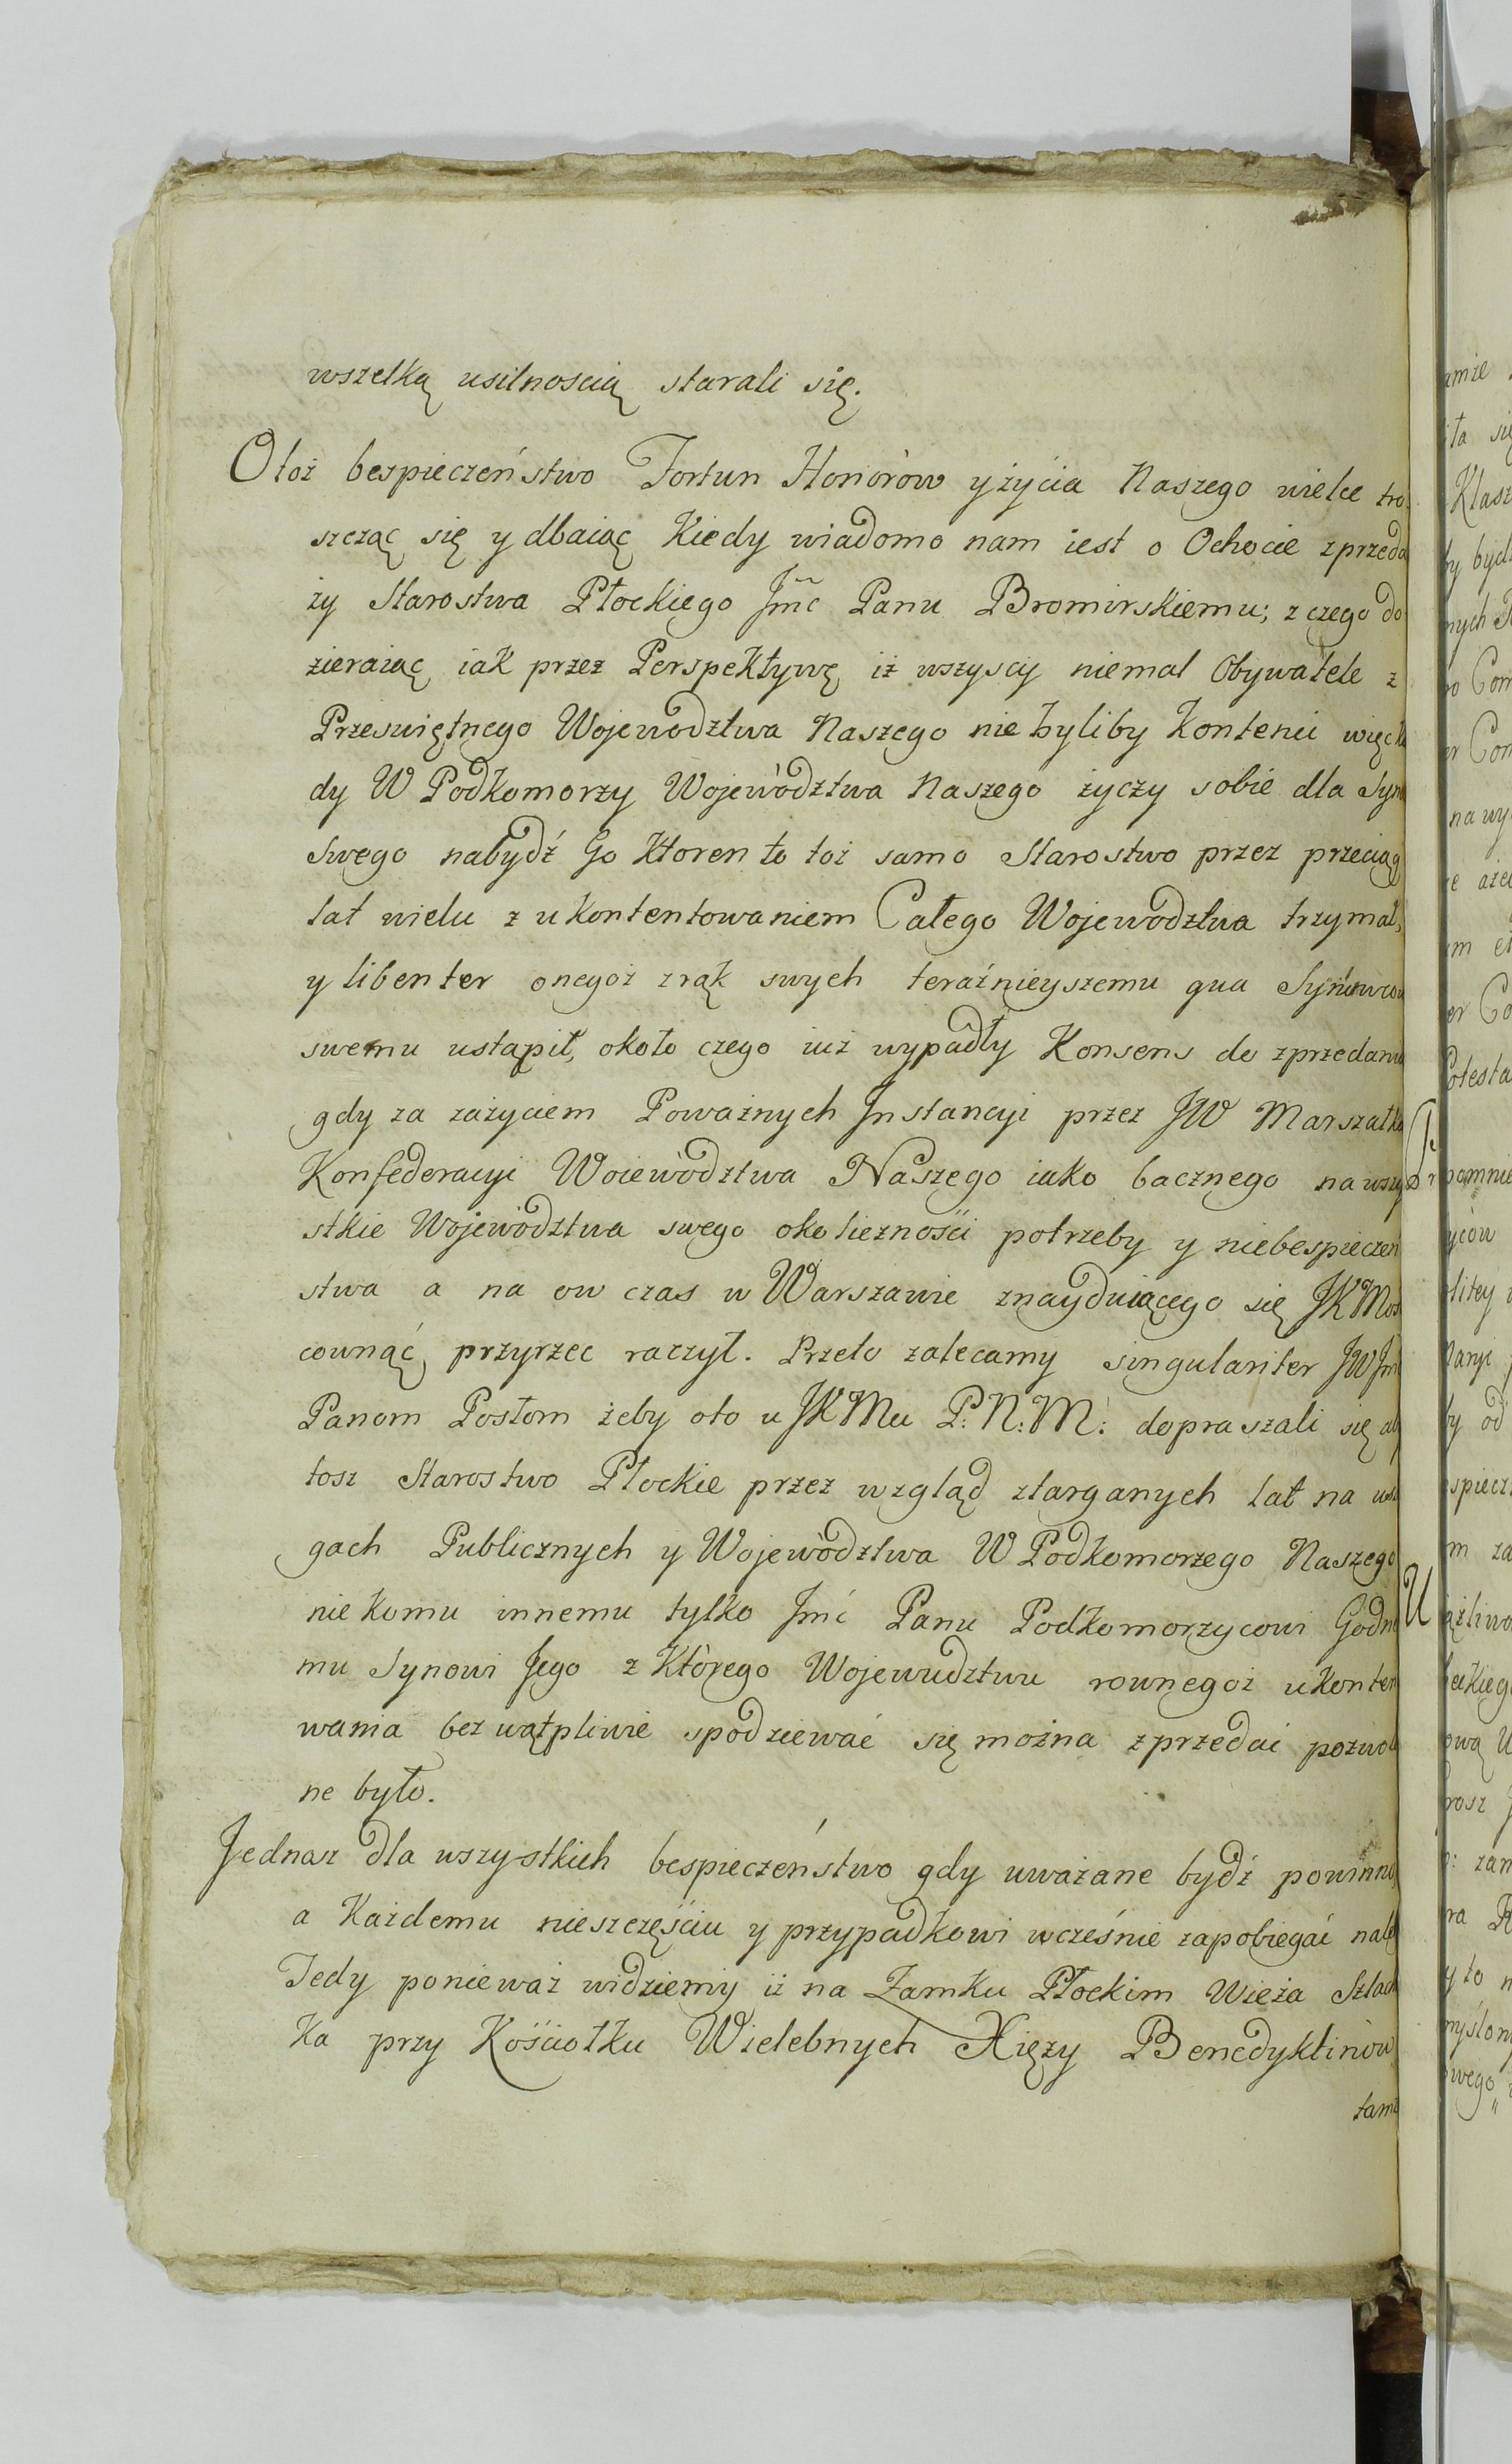 wszelką usilnoscią starali się.
Otoż bespieczeństwo Fortun Honorow y życia Naszego wielce tro
szcząc się y dbaiąc Kiedy wiadomo nam iest o Ochocie zprzeda
ży Starostwa Płockiego Jmc Panu Bromirskiemu; z czego do
zieraiąc iak przez Perspektywę iż wszyscy niemal Obywatele z
Przeswiętnego Wojewodztwa Naszego nie byliby Kontenci więc
dy W Podkomorzy Wojewòdztwa Naszego życzy sobie dla Syna
swego nabydź Go Ktoren to toż samo Starostwo przez przeciąg
lat wielu z ukontentowaniem Całego Wojewodztwa trzymał,
y libenter onegoż z rąk swych teraźnieyszemu qua
swemu ustąpił, około czego iuż wypadły Konsens do zprzedania
gdy za zażyciem Poważnych Instancyi przez JW Marszałka
Konfederacyi Woiewòdztwa Naszego iako bacznego na wszy
stkie Wojewòdztwa swego okolicznośći potrzeby y niebespieczeń
stwa a na ow czas w Warszawie znayduiącego się JKMos
cownąć przyrzec raczył. Przeto zalecamy singulariter JW Jm
Panom Posłom żeby oto u JKMci P: N: M: dopraszali się aby
tosz Starostwo Płockie przez wzgląd ztarganych lat na usłu
gach Publicznych y Wojewòdztwa W Podkomorzego Naszego
nie komu innemu tylko Jmć Panu Podkomorzycowi Godne
mu Synowi Jego z Ktòrego Wojewudztwu rownegoż ukonten
wania bez wątpliwie spodziewać się można zprzedać pozwolo
ne było.
Jednasz dla wszystkich bespieczeństwo gdy uważane bydź powinno
a Każdemu nieszczęściu y przypadkowi wcześnie zapobiegać nale
Tedy ponieważ widziemy iż na Zamku Płockim Wieża Szlach
ka przy Kościołku Wielebnych Xięży Benedyktinòw
tami